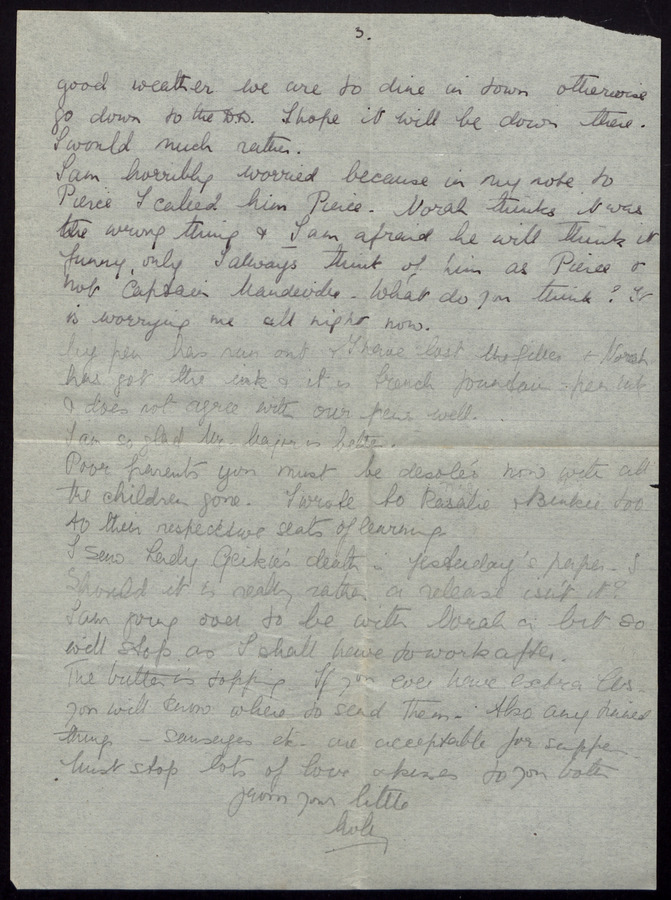 3.
good weather we are to dine in town otherwise
go down to the D.D. I hope it will be down there.
I would much rather.
I am horribly worried because in my note to
Pierce I called him Pierce. Norah thinks it was
the wrong thing & I am afraid he will think it
funny, only I always think of him as Pierce &
not Captain Mandeville. What do you think? It
is worrying me all night now.
My pen has run out & I have lost the filler & Norah
has got the ink & it is French fountain pen ink
& does not agree with our pens well.
I am so glad Mrs. Major is better.
Poor parents you must be desolés now with all
the children gone. I wrote to Rosalie & Binkie too
to their respective seats of learning.
I saw Lady Geikie's death in yesterday's paper. I
should it is really rather a release isn't it?
I am going over to be with Norah a bit so
will stop as I shall have to work after.
The butter is topping. If you ever have extra lbs.
you will know where to send them. Also any tinned
things – sausages etc. are acceptable for supper.
Must stop lots of love & kisses to you both
from your little